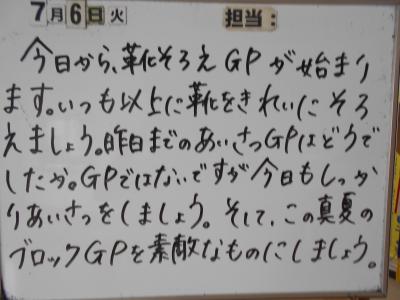 7月6日火 担当:
今日から、靴そろえGPが始まり
ます。いつも以上に靴をきれいにそろ
えましょう。昨日までのあいさつGPはどうで
したか。GPではないですが今日もしっか
りあいさつをしましょう。そして、この真夏の
ブロックGPを素敵なものにしましょう。